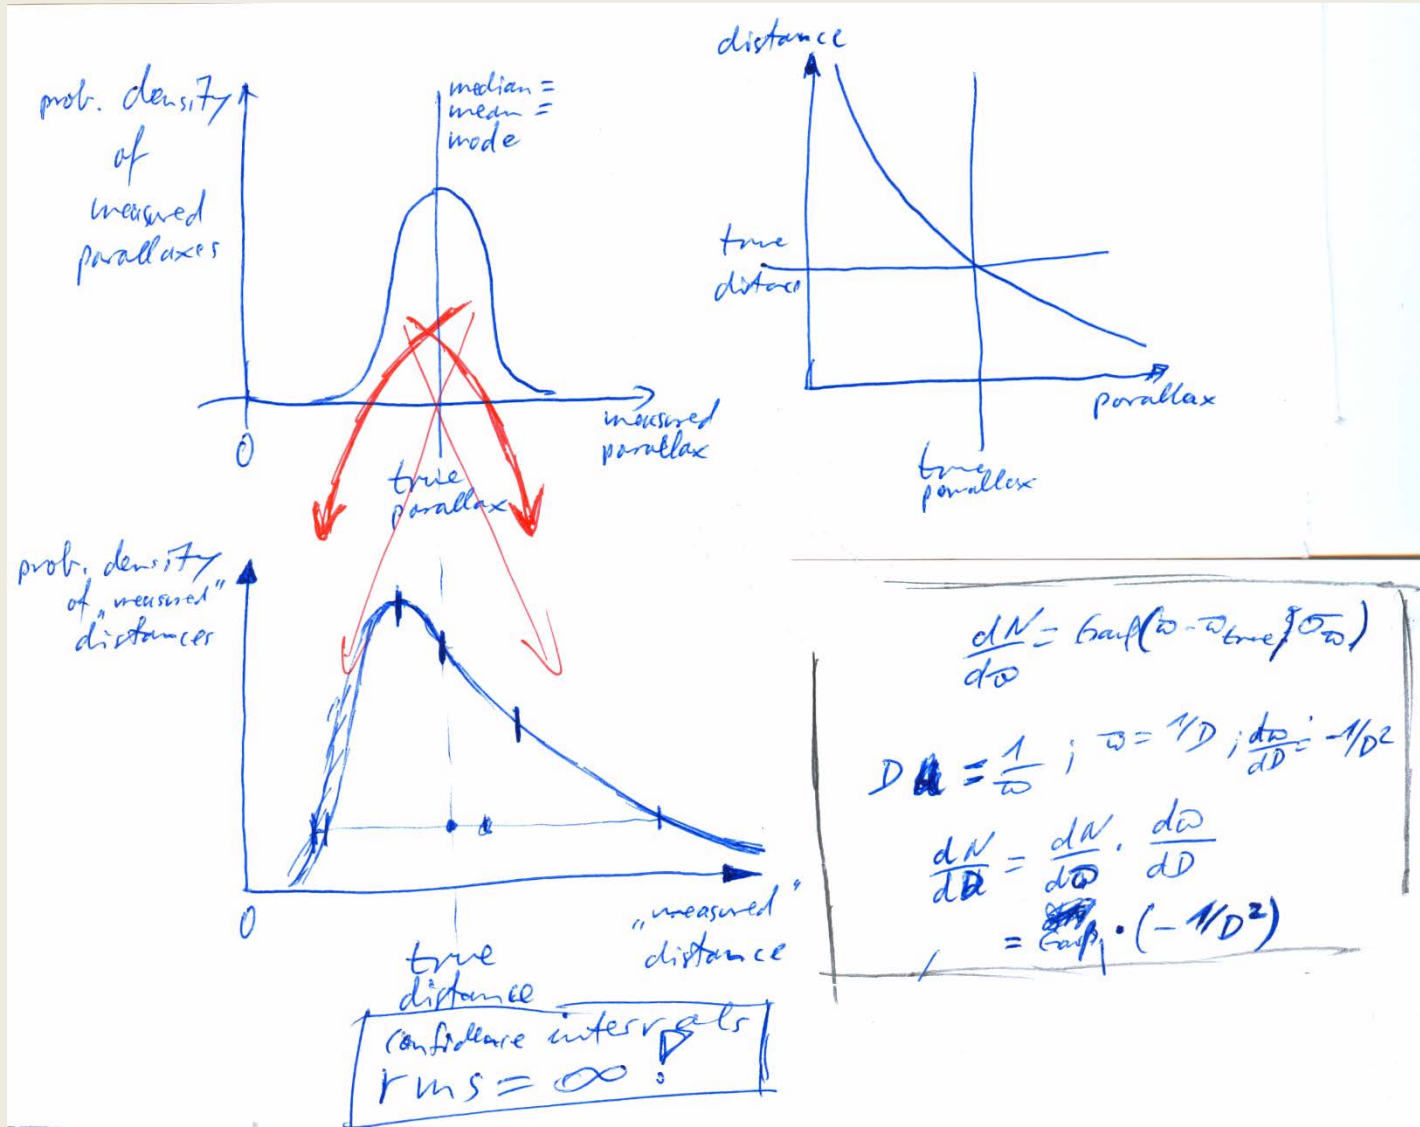 prob. density
of
measured
parallaxes
median =
mean =
mode
0
true
parallax
measured
parallax
distance
true
distance
parallax
true
parallax
prob. density
of „measured”
distances
0
true
distance
„measured”
distance
confidence intervals
rms = ∞ !
dN/dϖ = Gauß(ϖ - ϖtrue; σϖ)
D = 1/ϖ ; ϖ = 1/D ; dϖ/dD = -1/D²
dN/dD = dN/dϖ · dϖ/dD
= Gauß · (-1/D²)